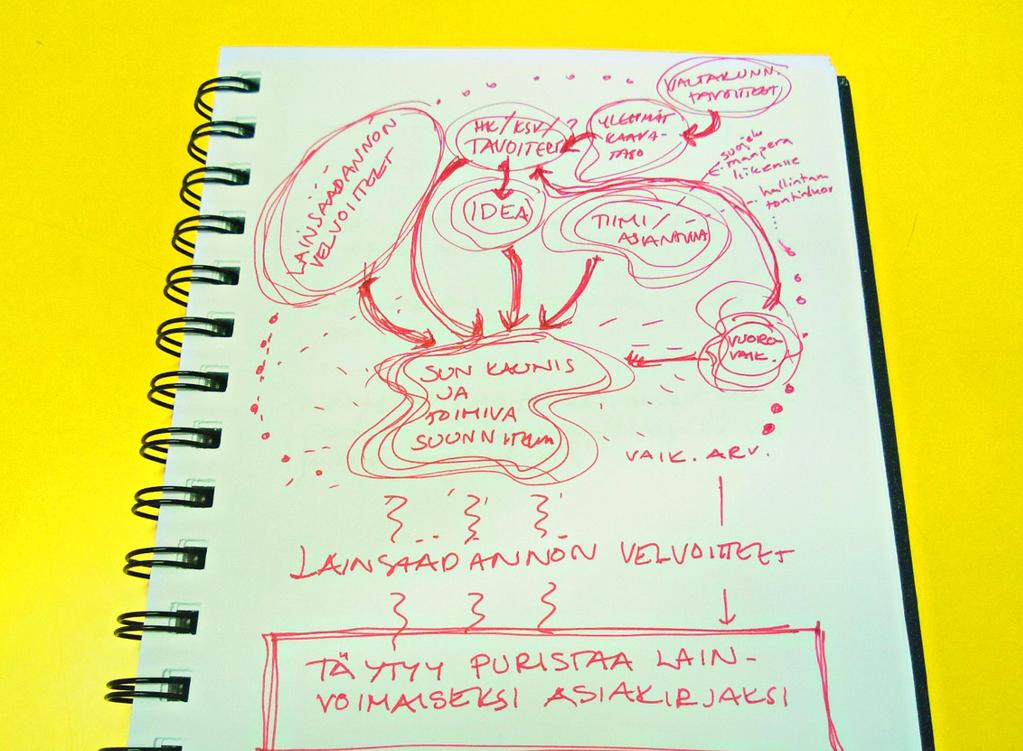 VALTAKUNN.
TAVOITTEET
YLEMMÄT
KAAVA-
TASO
HK/KSV/?
TAVOITTEET
LAINSÄÄDÄNNÖN
VELVOITTEET
IDEA
TIIMI/
suojelu
maaperä
liikenne
hallintam
VUORO-
VAIK.
SUN KAUNIS
JA
TOIMIVA
SUUNNITELMA
VAIK. ARV.
LAINSÄÄDÄNNÖN VELVOITTEET
TÄYTYY PURISTAA LAIN-
VOIMAISEKSI ASIAKIRJAKSI